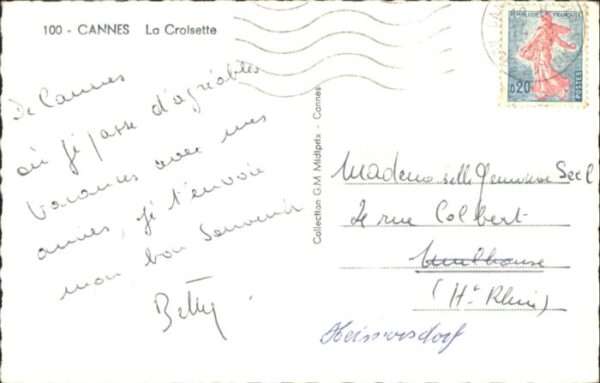 100 - CANNES La Croisette
RÉPUBLIQUE FRANÇAISE
0,20
POSTES
De Cannes
où je passe d'agréables
vacances avec mes
amies, je t'envoie
mon bon souvenir
Betty.
Collection G.M Midiprix - Cannes
Mademoiselle Geneviève
rue Colbert
Mulhouse
(Ht Rhin)